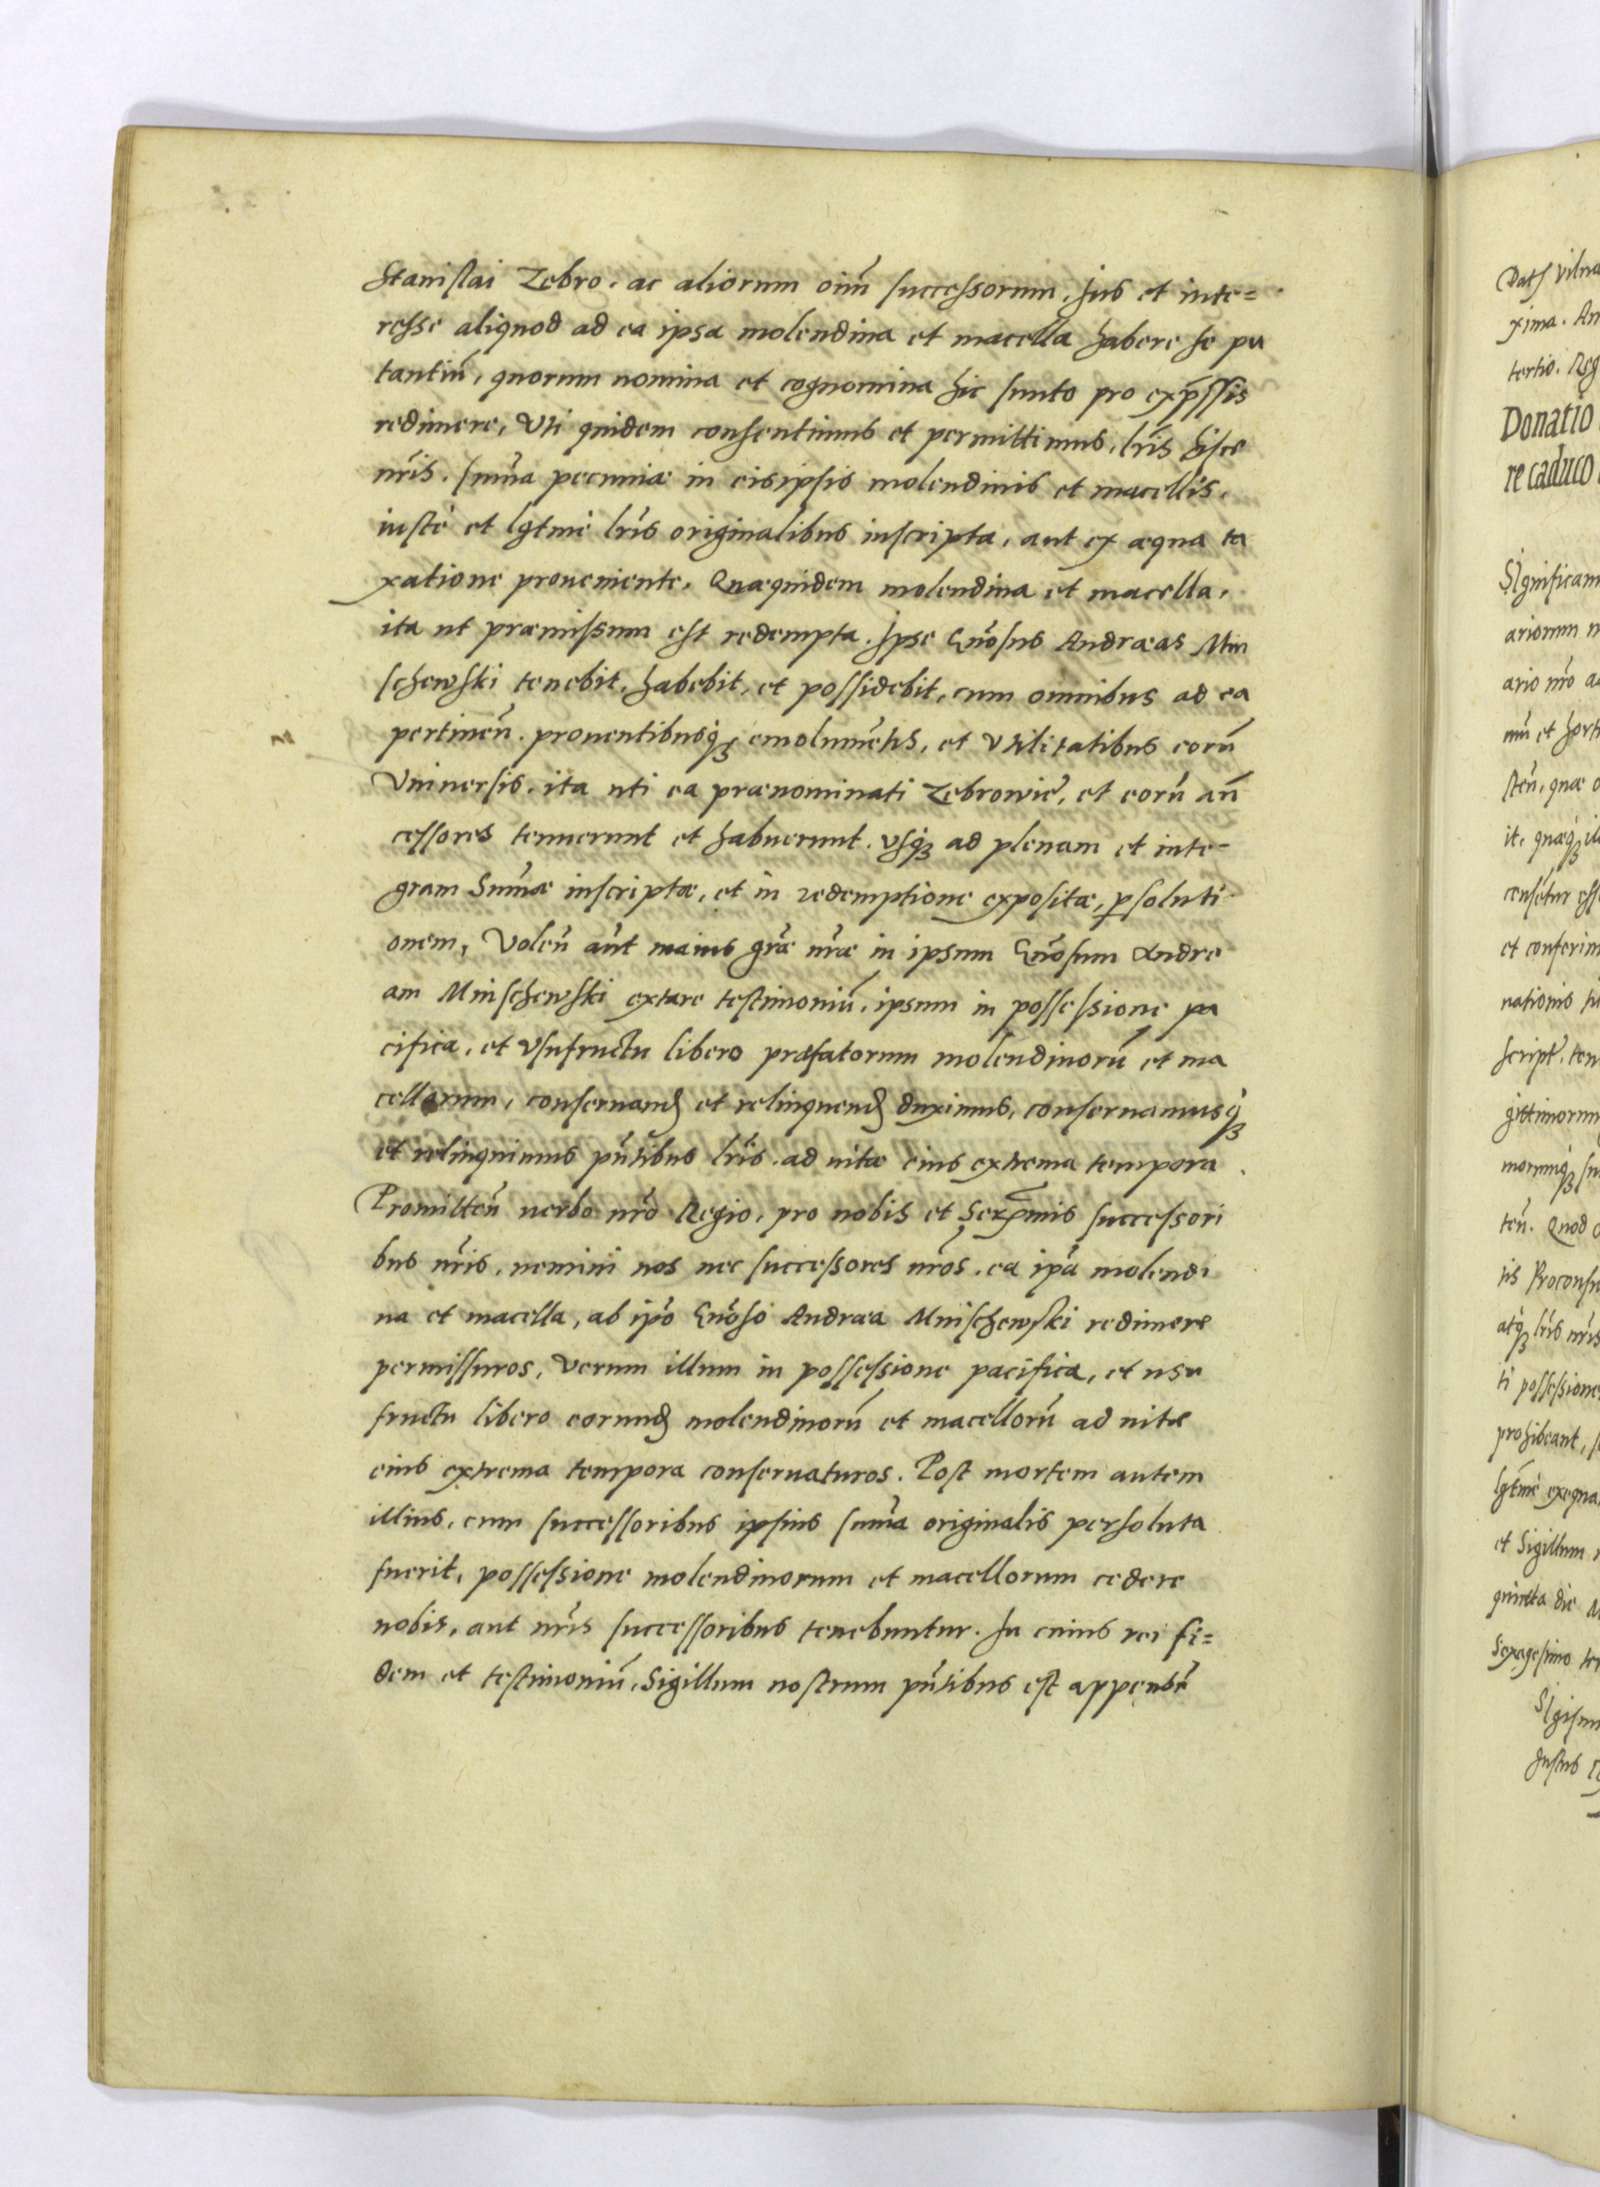 Stanislai Zebro. ac aliorum oim̃ successorum, Jus et inte=
resse aliquod ad ea ipsa molendina et macella habere se pu
tantiũ, quorum nomina et cognomina hic sunto pro exp̃ssis
redimere, Vti quidem consentimus et permittimus, lr̃is hisce
nr̃is. sum̃a pecuniæ in eisipsis molendinis et macellis,
iustè et lgt̃mè lr̃is originalibus inscripta, aut ex æqua ta
xatione proueniente. Quæquidem molendina et macella,
ita ut præmissum est redempta. Ipse Gñosus Andræas Mni
schewski tenebit, habebit, et possidebit, cum omnibus ad ea
pertineñ. prouentibusq̃ꝫ emolumẽtis, et Vtilitatibus eorũ
Vniuersis. ita uti ea prænominati Zebrowić, et eorũ añ
cessores tenuerunt et habuerunt. vsq̃ꝫ ad plenam et inte-
gram Sum̃æ inscriptæ, et in redemptione expositæ, ꝑsoluti
onem, Voleñ aũt maius grã̃æ nr̃æ in ipsum Gñosum Andre
am Mnischewski extare testimoniũ, ipsum in possessione pa
cifica, et Vsufructu libero præfatorum molendinorũ et ma
cellorum, conseruanḍ et relinquenḍ duximus, conseruamusq̃ꝫ
et relinquimus pñtibus lr̃is. ad uitæ eius extrema tempora.
Promitteñ uerbo nr̃o Regio, pro nobis et Serẽmis successori
bus nr̃is, nemini nos nec successores nr̃os. ea ip̃a molendi
na et macella, ab ip̃o Gñoso Andræa Mnischewski redimere
permissuros, Verum illum in possessione pacifica, et usu
fructu libero eorunḍ molendinorũ et macellorũ ad uitæ
eius extrema tempora conseruaturos. Post mortem autem
illius, cum successoribus ipsius sum̃a originalis persoluta
fuerit, possessione molendinorum et macellorum cedere
nobis, aut nr̃is successoribus tenebuntur. In cuius rei fi=
dem et testimoniũ, Sigillum nostrum pñtibus est appenš
Vilna
xima. An
tertio. Reg
Donatio
re caduco
Significam
ariorum
ario nr̃o
et
steñ, quæ
it, quæq̃ꝫ
censetur
et conferim
nationis
script̃. ten
gittimorum
morumq̃ꝫ
teñ. Quod
tis Proconsu
atq̃ꝫ lr̃is nr̃is
ti possessione
prohibeant,
lgt̃mè exequa
et Sigillum
quinta die
sexagesimo ter
Sigism
Justus